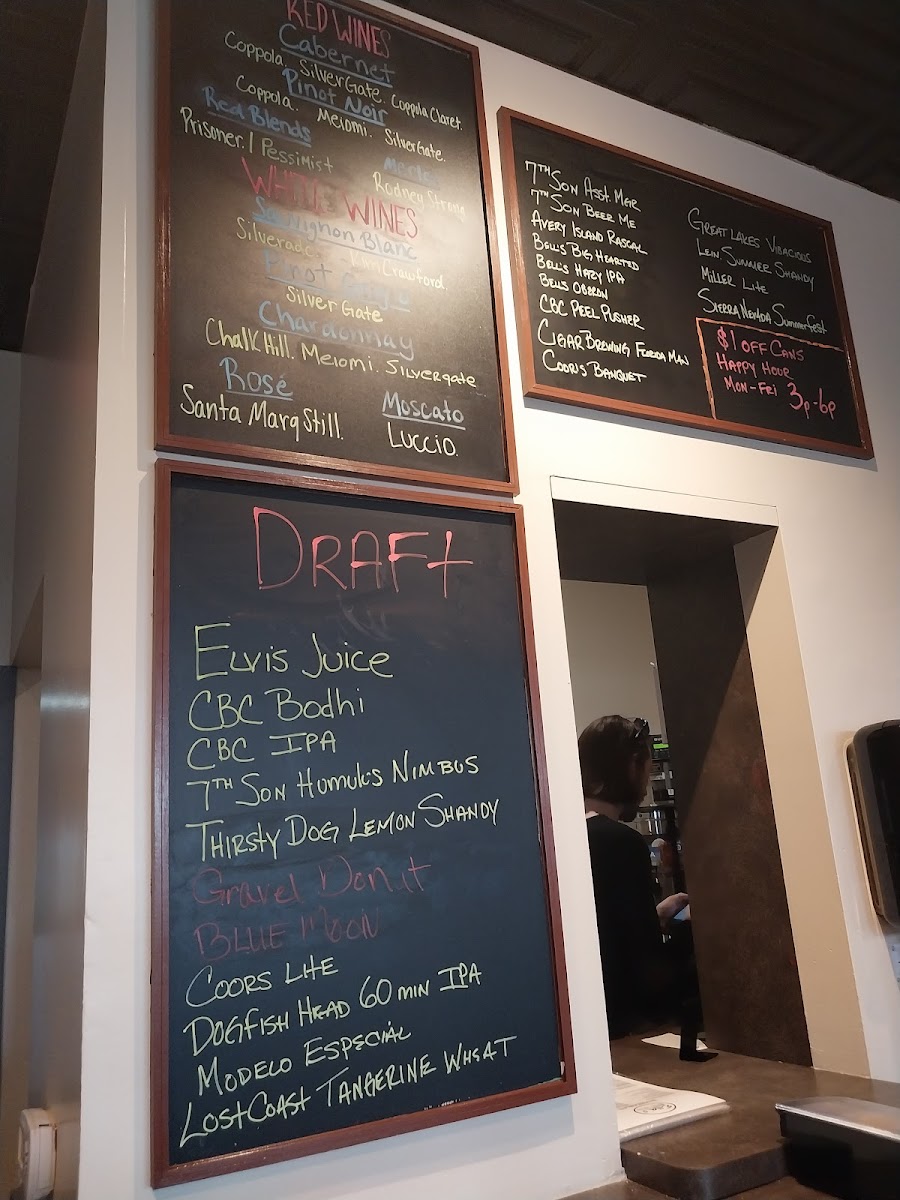 RED WINES
Cabernet
Coppola. SilverGate. Coppola Claret.
Pinot Noir
Coppola. Meiomi. SilverGate.
Red Blends
Prisoner. / Pessimist
Merlot
Rodney Strong
WHITE WINES
Sauvignon Blanc
Silverado Kim Crawford.
Pinot Grigio
Silver Gate
Chardonnay
Chalk Hill. Meiomi. Silvergate
Rosé
Santa Marg Still.
Moscato
Luccio.
7TH SON ASST. MGR
7TH SON BEER ME
AVERY ISLAND RASCAL
BELL'S BIG HEARTED
BELL'S HAZY IPA
BELLS OBERON
CBC PEEL PUSHER
CIGAR BREWING FLORIDA MAN
COORS' BANQUET
GREAT LAKES VIBACIOUS
LEIN SUMMER SHANDY
MILLER LITE
SIERRA NEVADA SUMMERFEST
$1 OFF CANS
HAPPY HOUR
MON-FRI 3p-6p
DRAFT
ELVIS JUICE
CBC Bodhi
CBC IPA
7TH SON HUMULUS NIMBUS
THIRSTY DOG LEMON SHANDY
Gravel Donut
BLUE MOON
COORS LITE
DOGFISH HEAD 60 MIN IPA
MODELO ESPECIÁL
LOST COAST TANGERINE WHEAT